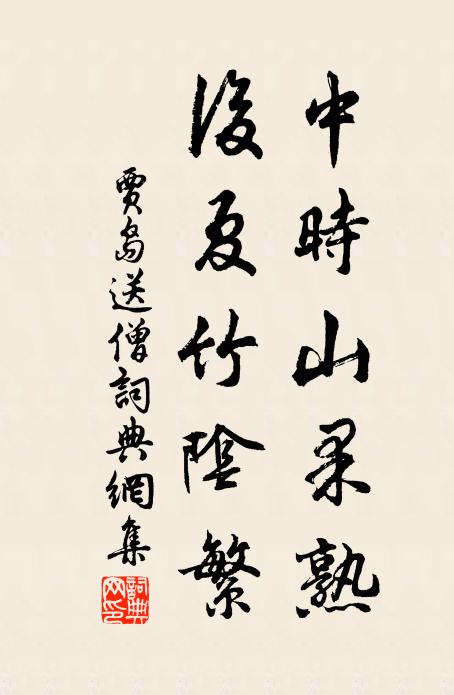 中時山果熟
後夏竹陰繁
賈島送僧詞典網集
詞典網印